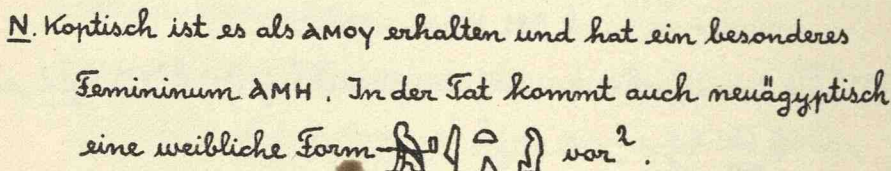 N. Koptisch ist es als ⲁⲙⲟⲩ erhalten und hat ein besonderes
Femininum ⲁⲙⲏ. In der Tat kommt auch neuägyptisch
eine weibliche Form vor².